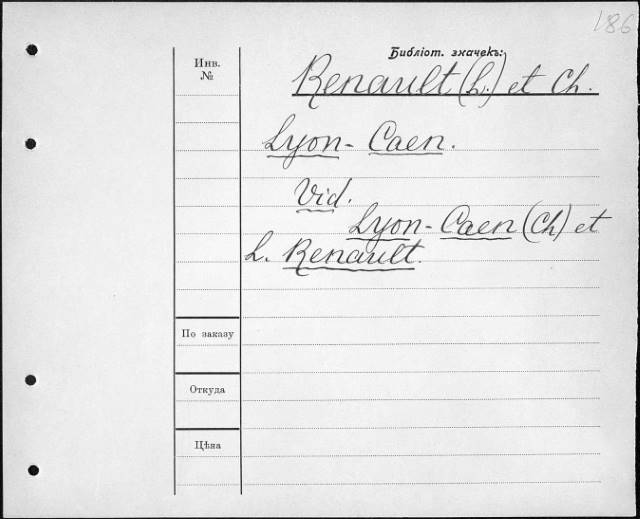 186
Библіот. значекъ:
Инв.
№
Renault (L.) et Ch.
Lyon-Caen.
Vid.
Lyon-Caen (Ch) et
L. Renault.
По заказу
Откуда
Цѣна